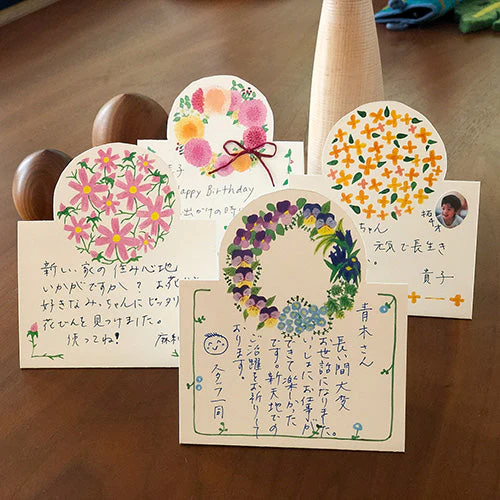 新しい家の住み心地
いかがですか？お花が
好きなみぃちゃんにピッタリ
花びんを見つけました。
使ってね！
麻
子
Happy Birthday
出かけの時
ちゃん
元気で長生き
貴子
青木さん
長い間大変
お世話になりました。
いっしょにお仕事が
できて楽しかった
です。新天地での
ご活躍をお祈りして
おります。
スタッフ一同